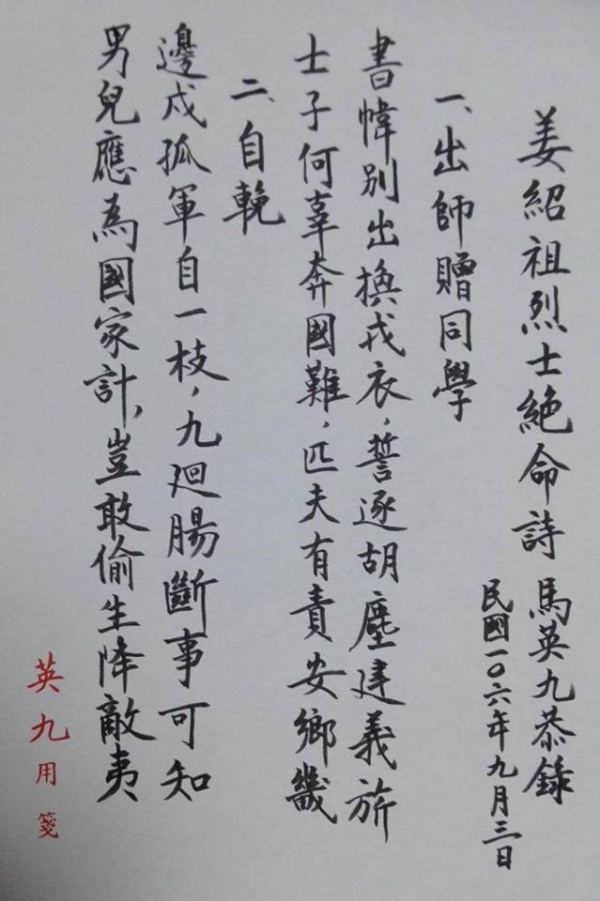 姜紹祖烈士絕命詩 馬英九恭錄
民國一〇六年九月三日
一、出師贈同學
書幃別出換戎衣,誓逐胡塵建義旂
士子何辜奔國難,匹夫有責安鄉畿
二、自輓
邊戍孤軍自一枝,九廻腸斷事可知
男兒應為國家計,豈敢偷生降敵夷
英九用箋